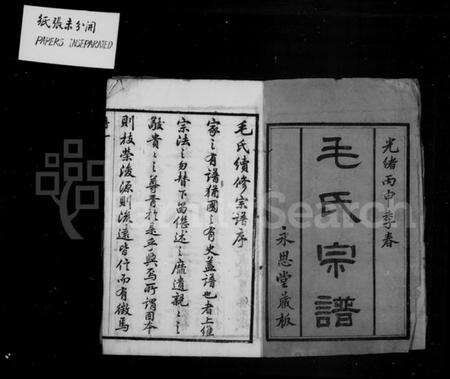 紙張未分開
PAPERS INSEPARATED
光緒丙申季春
毛氏宗譜
永思堂藏板
毛氏續修宗譜序
家之有譜猶國之有史蓋譜也者上惟
宗法之勿替下曷述之靡遺親之
敬貴之尊著於是乎興焉所謂固本
則枝榮浚源則流遠皆信而有徵焉